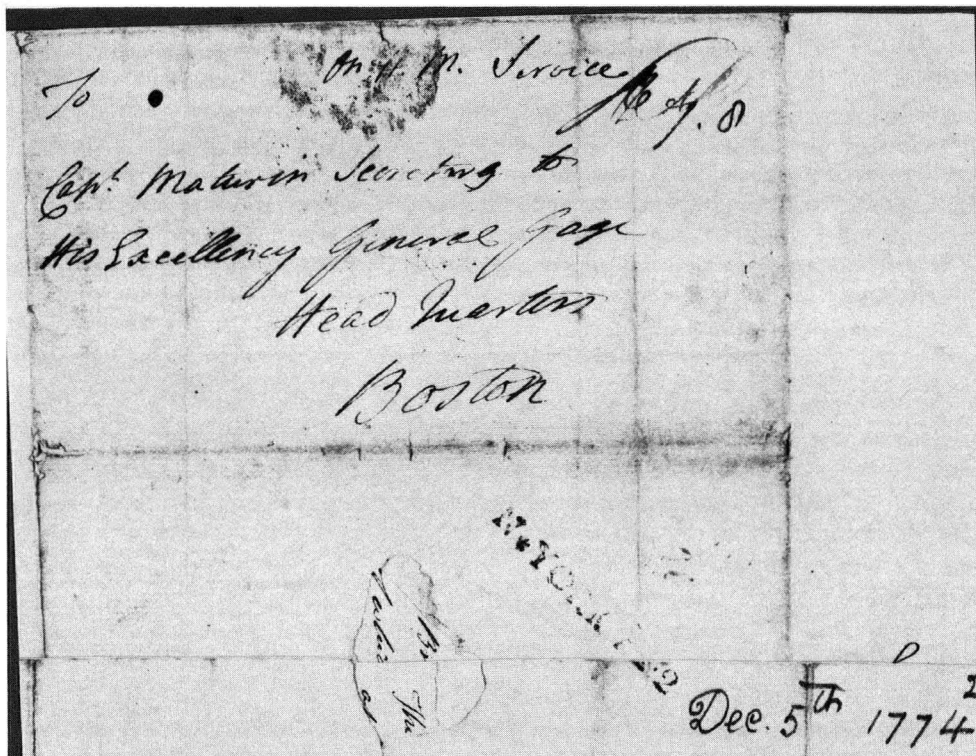 On H M. Service
To
Capt. Maturin Secretary to
His Excellency General Gage
Head Quarters
Boston
N*YORK
Dec. 5th 1774